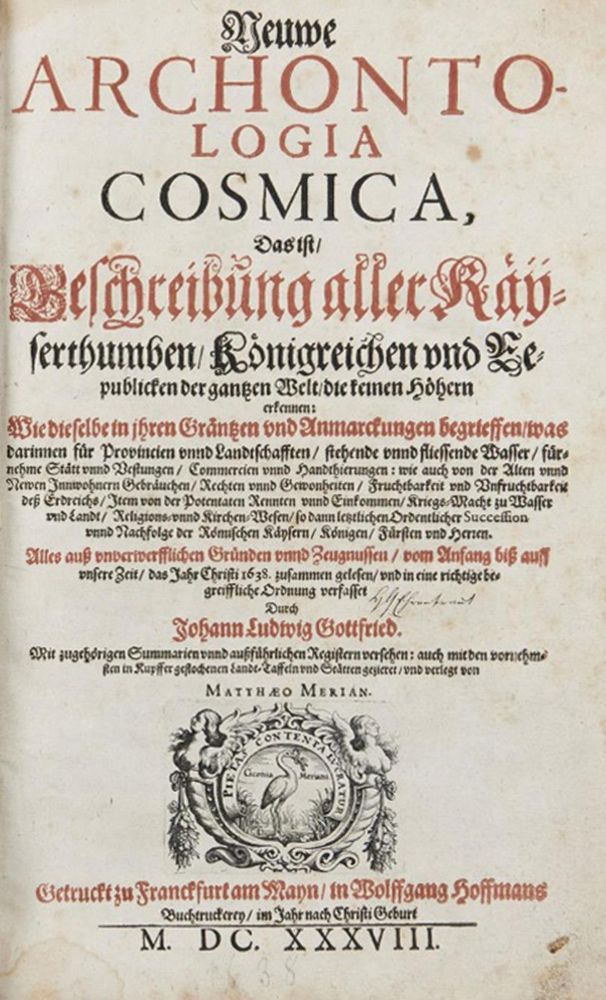 Neuwe
ARCHONTO-
LOGIA
COSMICA,
Das ist/
Beschreibung aller Käy-
serthumben/ Königreichen vnd Re-
publicken der gantzen Welt/ die keinen Höhern
erkennen:
Wie dieselbe in jhren Gräntzen vnd Anmarckungen begrieffen/ was
darinnen für Provincien vnnd Landtschafften/ stehende vnnd fliessende Wasser/ für-
nehme Stätt vnnd Vestungen/ Commercien vnnd Handthierungen: wie auch von der Alten vnnd
Newen Innwohnern Gebräuchen/ Rechten vnnd Gewonheiten/ Fruchtbarkeit vnd Vnfruchtbarkeit
deß Erdreichs/ Item von der Potentaten Rennten vnnd Einkommen/ Kriegs-Macht zu Wasser
vnd Landt/ Religions-vnnd Kirchen-Wesen/ so dann letztlichen Ordentlicher Succession
vnnd Nachfolge der Römischen Käysern/ Königen/ Fürsten vnd Herren.
Alles auß vnverwerfflichen Gründen vnnd Zeugnussen/ vom Anfang biß auff
vnsere Zeit/ das Jahr Christi 1638. zusammen gelesen/ vnd in eine richtige be-
greiffliche Ordnung verfasset
Durch
Johann Ludwig Gottfried.
Mit zugehörigen Summarien vnnd außführlichen Registern versehen: auch mit den vornehm-
sten in Kupffer gestochenen Landt-Taffeln vnd Stätten gezieret/ vnd verlegt von
MATTHÆO MERIAN.
PIETAS CONTENTA LVCRATVR
Ciconia Meriani
Getruckt zu Franckfurt am Mayn/ in Wolffgang Hoffmans
Buchtruckerey/ im Jahr nach Christi Geburt
M. DC. XXXVIII.
38